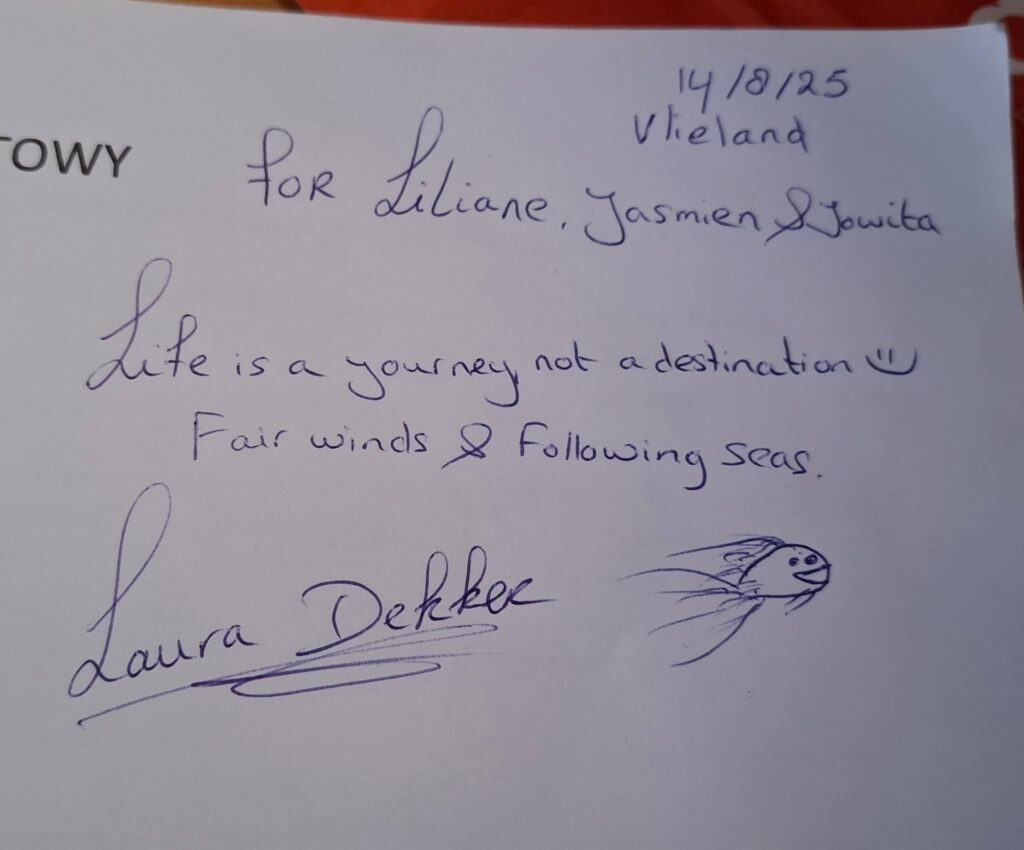 14/8/25
Vlieland
TOWY
For Liliane, Jasmien & Jowita
Life is a yourney not a destination
Fair winds & Following seas.
Laura Dekker